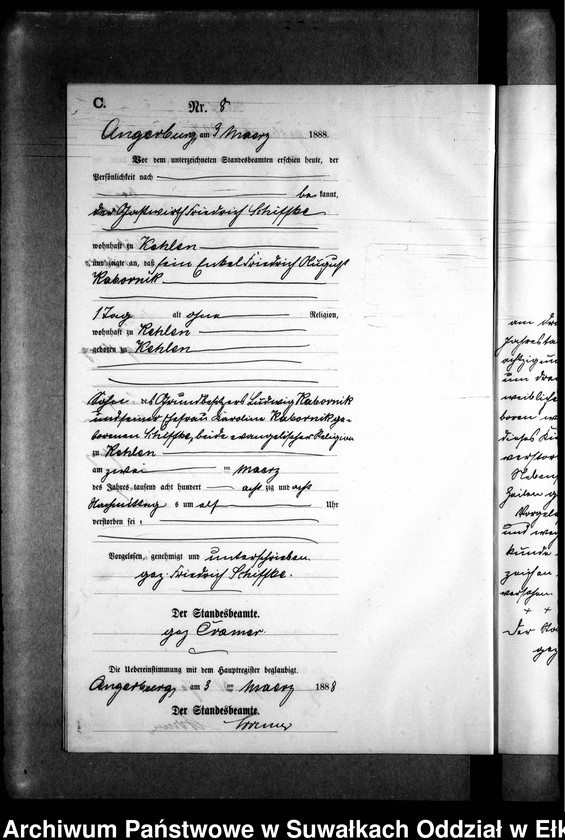 C.
Nr. 8
Angerburg am 3 Maerz 1888.
Vor dem unterzeichneten Standesbeamten erschien heute, der
Persönlichkeit nach
be kannt,
der Gastwirth Friedrich Schiffke
wohnhaft zu Kehlen
und zeigte an, daß sein Enkel Friedrich August
Kabornik
1 Tag alt ohne Religion,
wohnhaft zu Kehlen
geboren zu Kehlen
Sohn des Grundbesitzers Ludwig Kabornik
und seiner Ehefrau Karoline Kabornik ge-
borenen Schiffke, beide evangelischer Religion
zu Kehlen
am zwei ten Maerz
des Jahres tausend acht hundert acht zig und acht
Nachmittag s um elf Uhr
verstorben sei
Vorgelesen, genehmigt und unterschrieben
gez. Friedrich Schiffke.
Der Standesbeamte.
gez Cramer
Die Uebereinstimmung mit dem Hauptregister beglaubigt.
Angerburg am 3 ten Maerz 1888
Der Standesbeamte.
Cramer
am
achtzig
um
weibliche
boren
dieses
verstor
Neben
Zeilen
Vorgel
und
kunde
zeichen
versehen.
+ +
Der
gez
Archiwum Państwowe w Suwałkach Oddział w Ełk